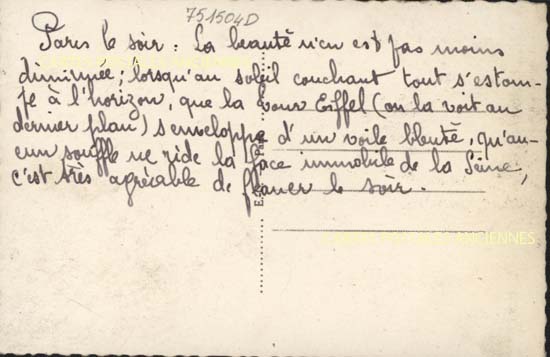 751504D
Paris le soir : La beauté n'en est pas moins
diminuée ; lorsqu'au soleil couchant tout s'estom-
pe à l'horizon, que la tour Eiffel (on la voit au
dernier plan) s'enveloppe d'un voile bleuté, qu'au-
cun souffle ne ride la face immobile de la Seine,
c'est très agréable de flaner le soir.
CARTES POSTALES ANCIENNES
CARTES POSTALES ANCIENNES